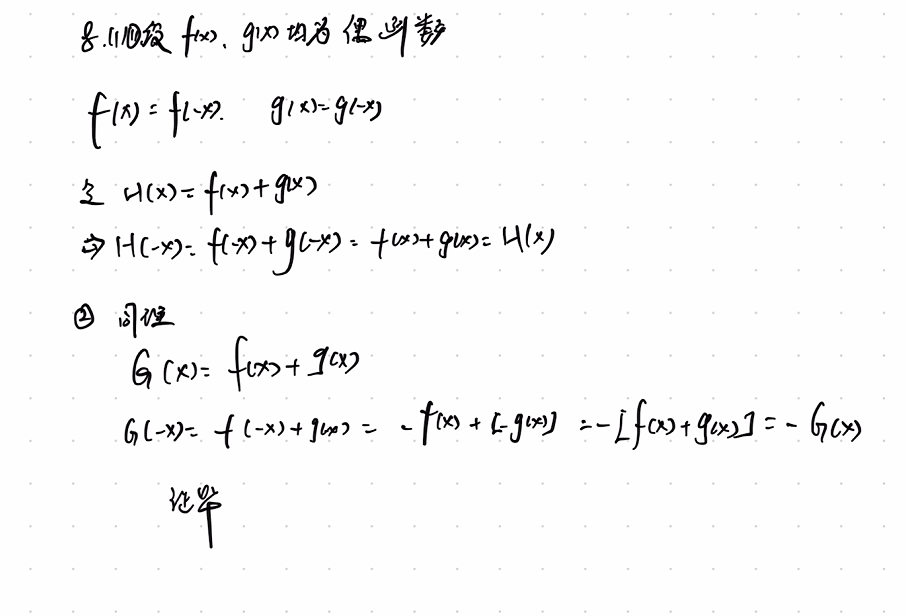 8.(1)①设 f(x)、g(x)均为偶函数
f(x)=f(-x). g(x)=g(-x)
令 H(x)=f(x)+g(x)
⇒ H(-x)=f(-x)+g(-x)=f(x)+g(x)=H(x)
② 同理
G(x)=f(x)+g(x)
G(-x)=f(-x)+g(x)=-f(x)+[-g(x)]=-[f(x)+g(x)]=-G(x)
证毕